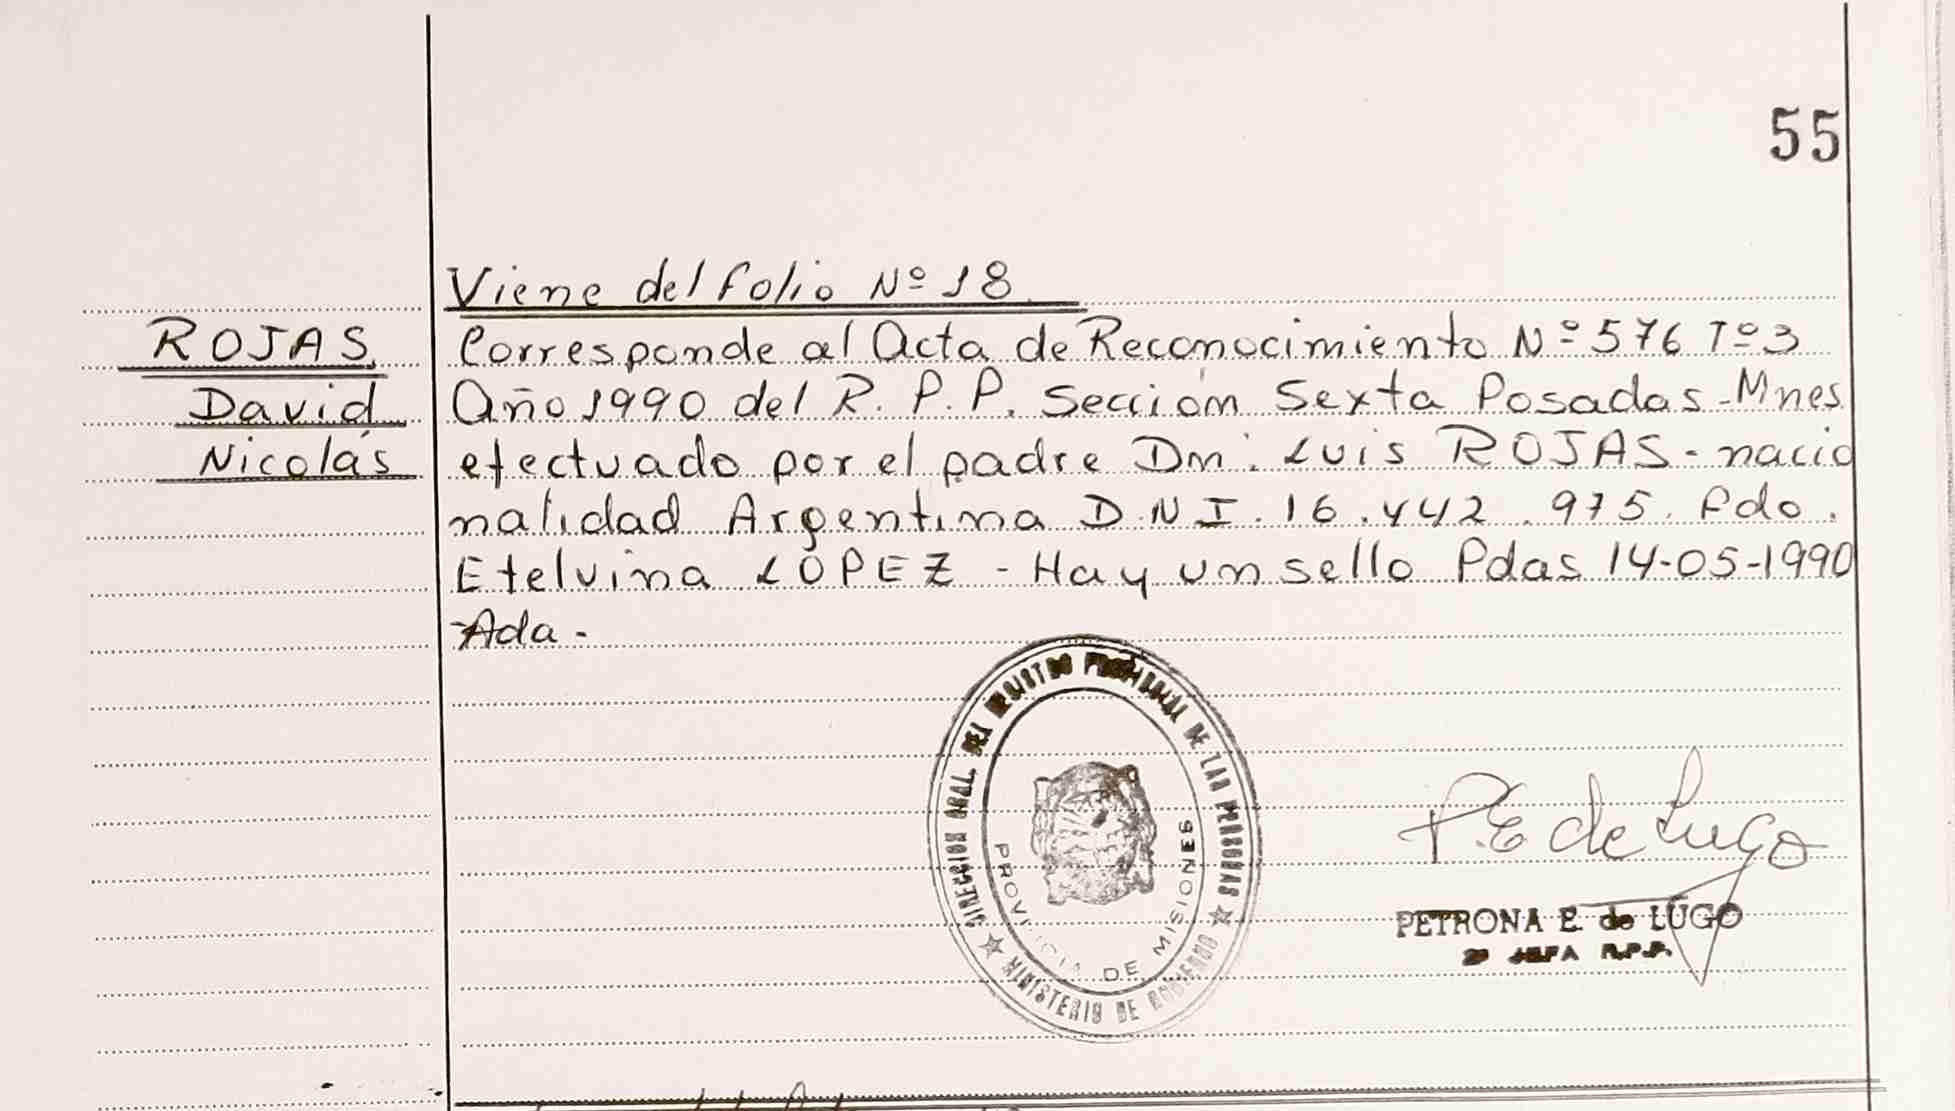 55
Viene del folio Nº 18
ROJAS,
David
Nicolás
Corresponde al Acta de Reconocimiento Nº 576 Tº 3
Año 1990 del R. P. P. Sección Sexta Posadas-Mnes
efectuado por el padre Dn: Luis ROJAS - nacio
nalidad Argentina D.N.I. 16.442.975. Fdo.
Etelvina LÓPEZ - Hay un sello Pdas 14-05-1990
Ada-
DIRECCION GRAL. DEL REGISTRO PROVINCIAL DE LAS PERSONAS
PROVINCIA DE MISIONES
MINISTERIO DE GOBIERNO
P.E de Lugo
PETRONA E. de LUGO
2ª JEFA R.P.P.